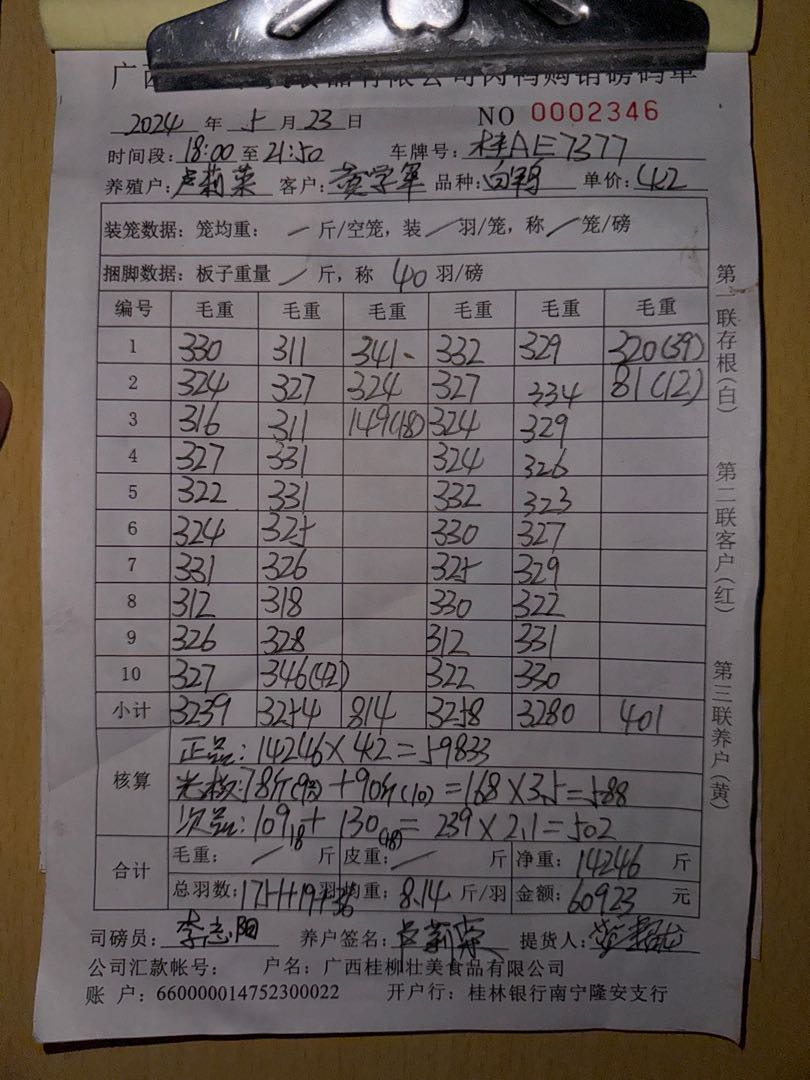 广西 食品有限公司肉鸭购销磅码单
2024 年 5 月 23 日 NO 0002346
时间段: 18:00 至 21:50 车牌号: 桂AE7377
养殖户: 卢莉荣 客户: 黄学军 品种: 白鸭 单价: 4.2
装笼数据: 笼均重: / 斤/空笼, 装 / 羽/笼, 称 / 笼/磅
捆脚数据: 板子重量 / 斤, 称 40 羽/磅
编号 毛重 毛重 毛重 毛重 毛重 毛重
1 330 311 341 332 329 320(39)
2 324 327 324 327 334 81(12)
3 316 311 149(18) 324 329
4 327 331 324 326
5 322 331 332 323
6 324 325 330 327
7 331 326 325 329
8 312 318 330 322
9 326 328 312 331
10 327 346(42) 322 330
小计 3239 3254 814 3258 3280 401
核算
正品: 14246×4.2=59833
78斤 +90斤(10) =168×3.5=588
次品: 109 18+ 130 (18)= 239×2.1=502
合计
毛重: / 斤 皮重: / 斤 净重: 14246 斤
总羽数: 1751+19+36 羽 均重: 8.14 斤/羽 金额: 60923 元
司磅员: 李志阳 养户签名: 卢莉荣 提货人:
公司汇款帐号: 户名: 广西桂柳壮美食品有限公司
账 户: 660000014752300022 开户行: 桂林银行南宁隆安支行
第一联存根(白)
第二联客户(红)
第三联养户(黄)